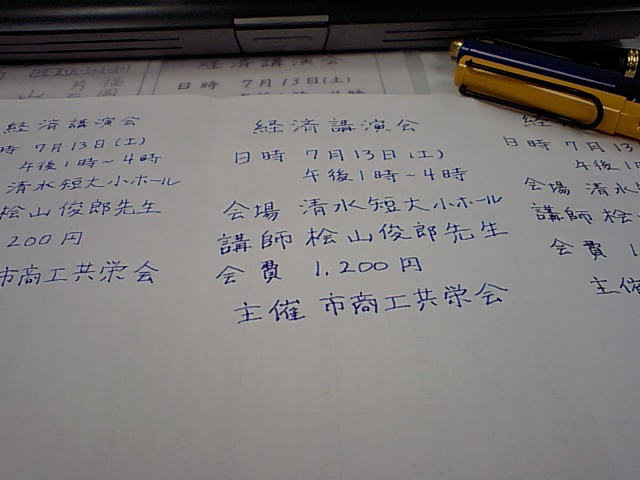 経済講演会
日時 7月13日(土)
経済講演会
時 7月13日(土)
午後1時~4時
清水短大小ホール
桧山俊郎先生
200円
市商工共栄会
経済講演会
日時 7月13日(土)
午後1時~4時
会場 清水短大小ホール
講師 桧山俊郎先生
会費 1.200円
主催 市商工共栄会
日時 7月13
午後1
会場 清水
講師 桧
会費 1.
主催